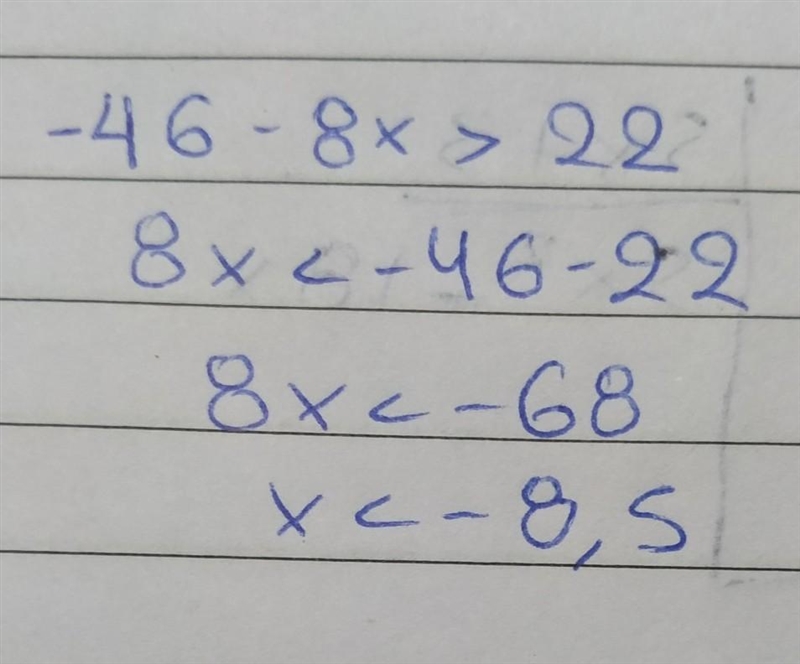 -46 - 8x > 22
8x < -46 - 22
8x < -68
x < -8,5